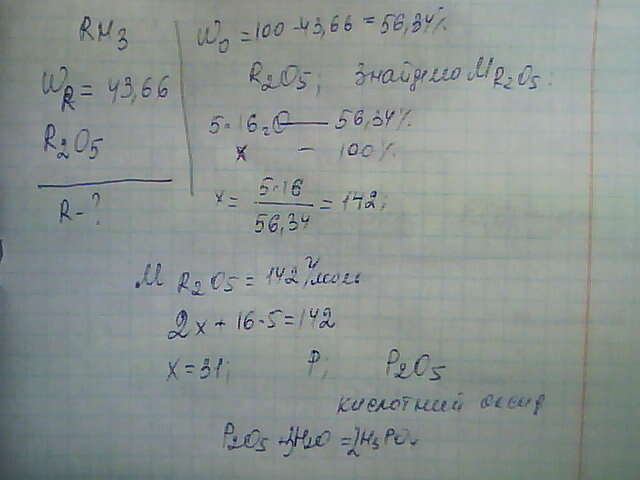 RH3
WR = 43,66
R2O5
R-?
WO = 100-43,66 = 56,34%
R2O5; Знайдемо MR2O5:
5·16 г O — 56,34%
x — 100%
x = 5·16 / 56,34 = 142;
M R2O5 = 142 г/моль
2x + 16·5 = 142
x = 31; P; P2O5
кислотний оксид
P2O5 + 3H2O = 2H3PO4